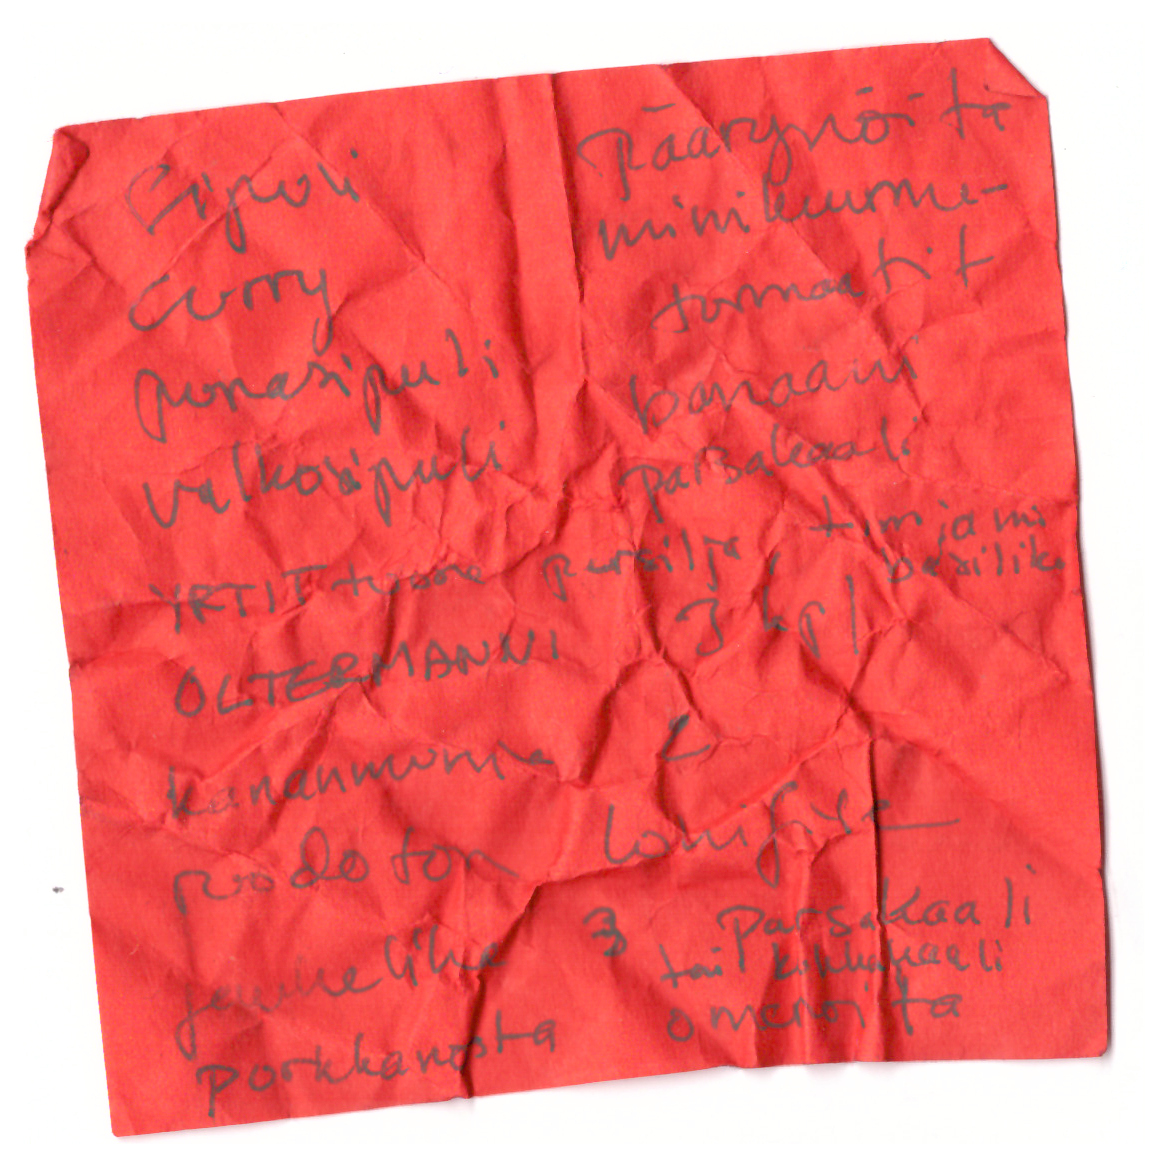 Sipoli
Curry
punasipuli
valkosipuli
Päärynöitä
miniluumu-
tomaatit
banaani
parsakaali
YRTIT tuore persilja, timjami
basilika
OLTERMANNI 3 kpl
kananmunia 2
lohifile
jauheliha 3
porkkanosta
Parsakaali
tai kukkakaali
omenoita